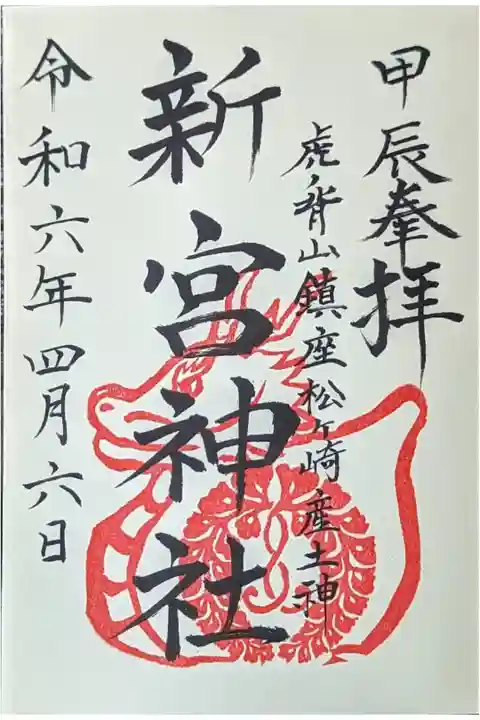 甲辰奉拝
虎ノ背山鎮座松ヶ崎産土神
新宮神社
令和六年四月六日